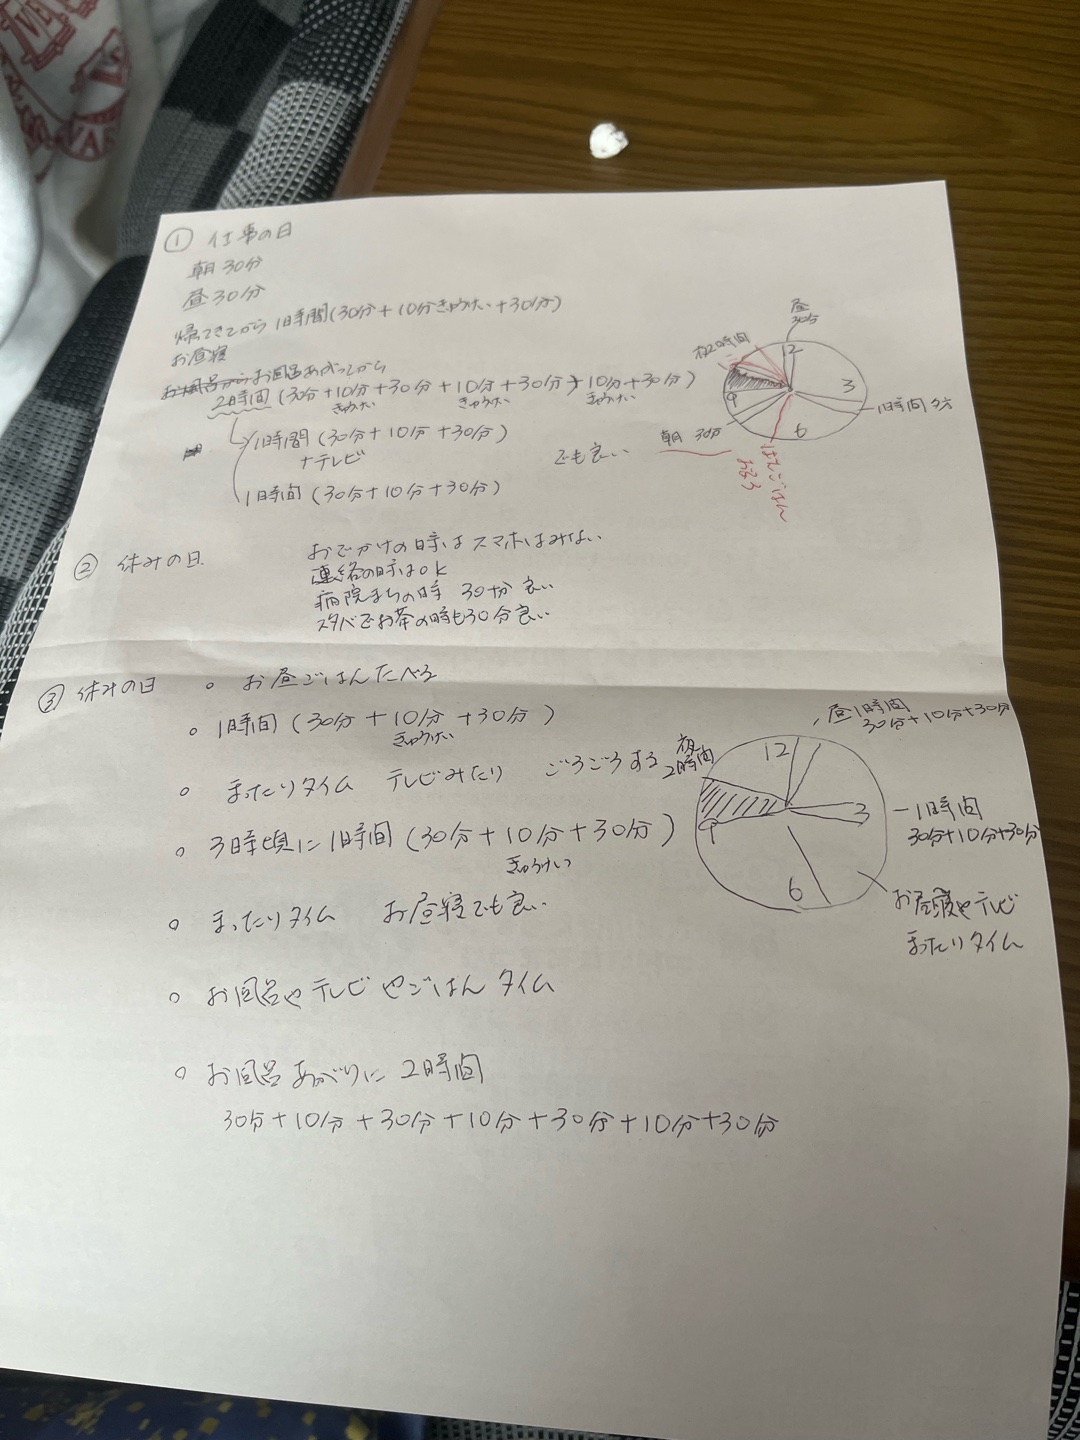 ① 仕事の日
朝30分
昼30分
帰てきてから 1時間(30分+10分きゅうけい+30分)
お昼寝
お風呂からお風呂あがってから
2時間(30分+10分+30分+10分+30分+10分+30分)
きゅうけい きゅうけい きゅうけい
1時間(30分+10分+30分)
+テレビ
でも良い
1時間(30分+10分+30分)
昼
30分
夜2時間
12
3
9
6
1時間 夕方
朝 30分
ごはん
おふろ
② 休みの日
おでかけの時はスマホはみない
連絡の時はok
病院まちの時 30分 良い
スタバでお茶の時も30分良い
③ 休みの日
○ お昼ごはんたべる
○ 1時間(30分+10分+30分)
きゅうけい
○ まったりタイム テレビみたり ごろごろする
○ 3時頃に1時間(30分+10分+30分)
きゅうけい
○ まったりタイム お昼寝でも良い
○ お風呂やテレビやごはんタイム
○ お風呂あがりに 2時間
30分+10分+30分+10分+30分+10分+30分
昼1時間
30分+10分+30分
夜
2時間
12
3
9
6
1時間
30分+10分+30分
お昼寝やテレビ
まったりタイム